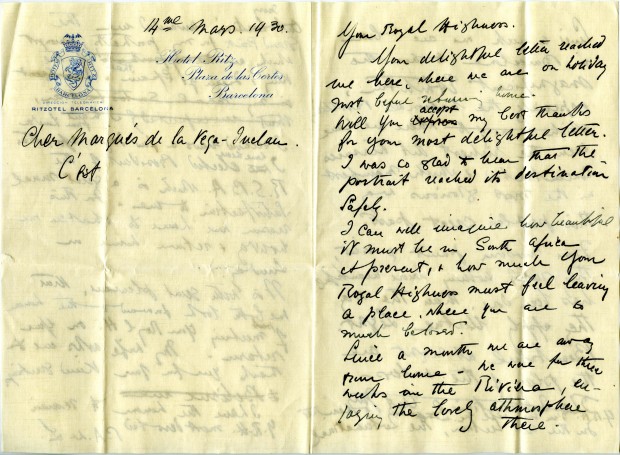 14me Mars 1930.
Hotel Ritz
Plaza de las Cortes
Barcelona
RITZOTEL BARCELONA
Cher Marqués de la Vega-Inclan.
C'est
Your Royal Highness.
Your delightful letter reached
me here, where we are on holiday
most before returning home.
accept
Will you express my best thanks
for your most delightful letter.
I was so glad to hear that the
portrait reached its destination
safely.
I can well imagine how beautiful
it must be in South Africa
at present, & how much Your
Royal Highness must feel leaving
a place, where you are so
much beloved.
Since a month we are away
from home - we were for three
weeks in the Riviera, en-
joying the lovely athmosphere
there.